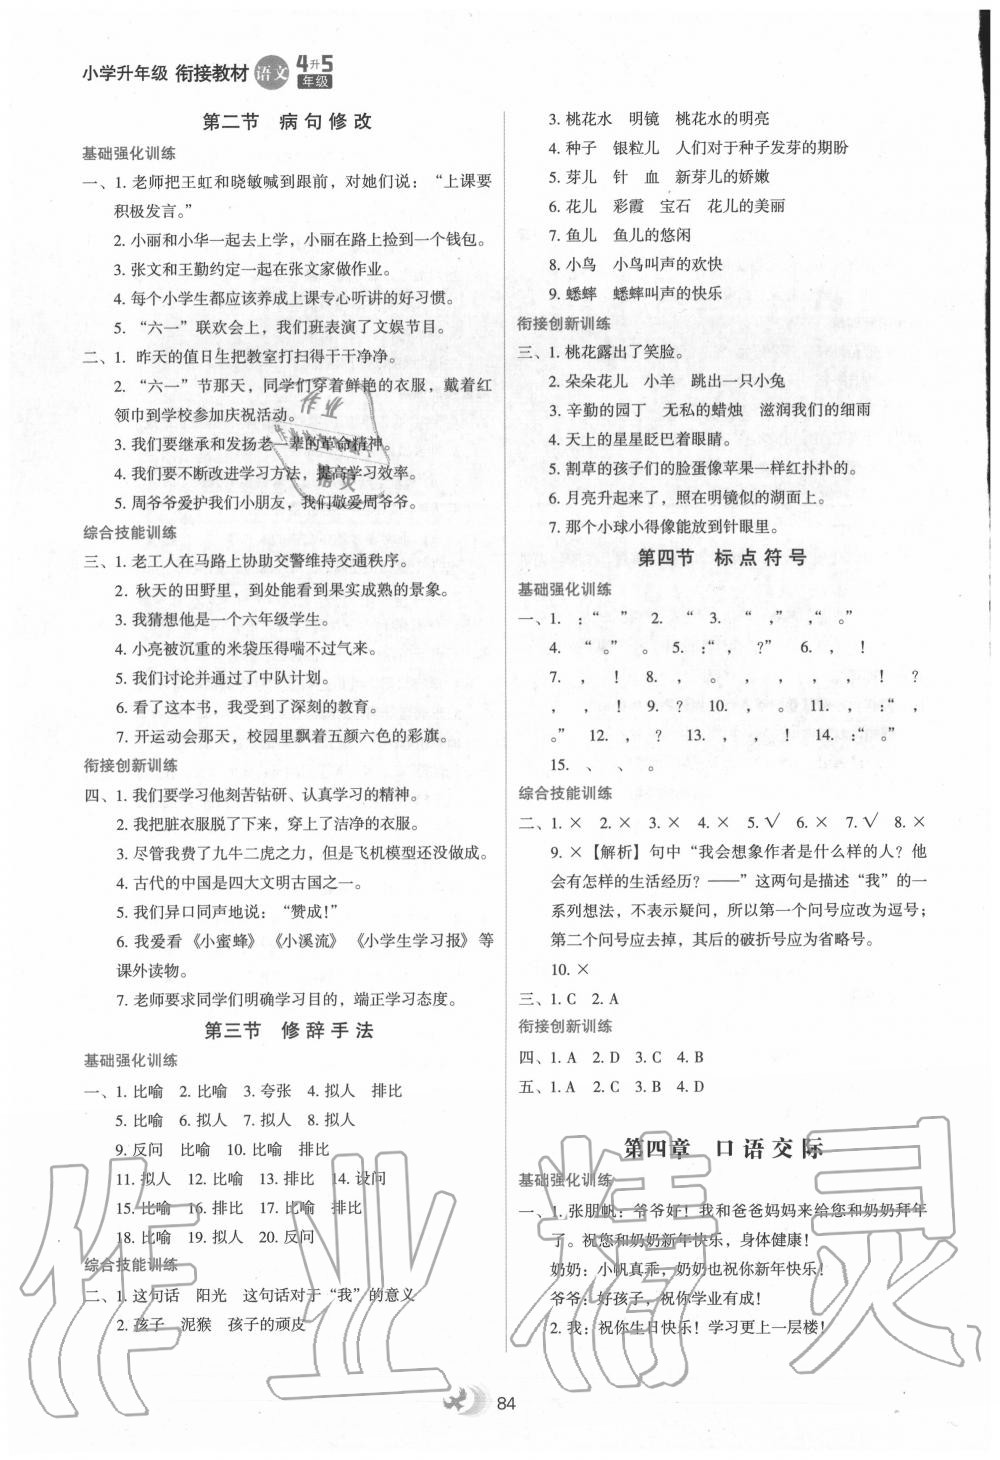 小学升年级 衔接教材 语文 4升5年级
第二节 病句修改
基础强化训练
一、1. 老师把王虹和晓敏喊到跟前，对她们说：“上课要
积极发言。”
2. 小丽和小华一起去上学，小丽在路上捡到一个钱包。
3. 张文和王勤约定一起在张文家做作业。
4. 每个小学生都应该养成上课专心听讲的好习惯。
5. “六一”联欢会上，我们班表演了文娱节目。
二、1. 昨天的值日生把教室打扫得干干净净。
2. “六一”节那天，同学们穿着鲜艳的衣服，戴着红
领巾到学校参加庆祝活动。
3. 我们要继承和发扬老一辈的革命精神。
4. 我们要不断改进学习方法，提高学习效率。
5. 周爷爷爱护我们小朋友，我们敬爱周爷爷。
综合技能训练
三、1. 老工人在马路上协助交警维持交通秩序。
2. 秋天的田野里，到处能看到果实成熟的景象。
3. 我猜想他是一个六年级学生。
4. 小亮被沉重的米袋压得喘不过气来。
5. 我们讨论并通过了中队计划。
6. 看了这本书，我受到了深刻的教育。
7. 开运动会那天，校园里飘着五颜六色的彩旗。
衔接创新训练
四、1. 我们要学习他刻苦钻研、认真学习的精神。
2. 我把脏衣服脱了下来，穿上了洁净的衣服。
3. 尽管我费了九牛二虎之力，但是飞机模型还没做成。
4. 古代的中国是四大文明古国之一。
5. 我们异口同声地说：“赞成！”
6. 我爱看《小蜜蜂》《小溪流》《小学生学习报》等
课外读物。
7. 老师要求同学们明确学习目的，端正学习态度。
第三节 修辞手法
基础强化训练
一、1. 比喻 2. 比喻 3. 夸张 4. 拟人 排比
5. 比喻 6. 拟人 7. 拟人 8. 拟人
9. 反问 比喻 10. 比喻 排比
11. 拟人 12. 比喻 13. 排比 14. 设问
15. 比喻 16. 排比 17. 比喻 排比
18. 比喻 19. 拟人 20. 反问
综合技能训练
二、1. 这句话 阳光 这句话对于“我”的意义
2. 孩子 泥猴 孩子的顽皮
3. 桃花水 明镜 桃花水的明亮
4. 种子 银粒儿 人们对于种子发芽的期盼
5. 芽儿 针 血 新芽儿的娇嫩
6. 花儿 彩霞 宝石 花儿的美丽
7. 鱼儿 鱼儿的悠闲
8. 小鸟 小鸟叫声的欢快
9. 蟋蟀 蟋蟀叫声的快乐
衔接创新训练
三、1. 桃花露出了笑脸。
2. 朵朵花儿 小羊 跳出一只小兔
3. 辛勤的园丁 无私的蜡烛 滋润我们的细雨
4. 天上的星星眨巴着眼睛。
5. 割草的孩子们的脸蛋像苹果一样红扑扑的。
6. 月亮升起来了，照在明镜似的湖面上。
7. 那个小球小得像能放到针眼里。
第四节 标点符号
基础强化训练
一、1. ：“ ” 2. “ ” 3. “ ，”，“ ，。”
4. “ 。” 。 5. ：“ ， ？” 6. ， ！
7. ， ！ 8. ， 。 ， ， ， ， ！ ？
， ， ！ 9. ？ 10. ， 。 11. ， ：“ ，
。” 12. ， ？ 13. ， ， ！ 14. ：“ 。”
15. 、 、 。
综合技能训练
二、1. × 2. × 3. × 4. × 5. √ 6. × 7. √ 8. ×
9. ×【解析】句中“我会想象作者是什么样的人？他
会有怎样的生活经历？——”这两句是描述“我”的一
系列想法，不表示疑问，所以第一个问号应改为逗号；
第二个问号应去掉，其后的破折号应为省略号。
10. ×
三、1. C 2. A
衔接创新训练
四、1. A 2. D 3. C 4. B
五、1. A 2. C 3. B 4. D
第四章 口语交际
基础强化训练
一、1. 张朋帆：爷爷好！我和爸爸妈妈来给您和奶奶拜年
了。祝您和奶奶新年快乐，身体健康！
奶奶：小帆真乖，奶奶也祝你新年快乐！
爷爷：好孩子，祝你学业有成！
2. 我：祝你生日快乐！学习更上一层楼！
84
作业精灵